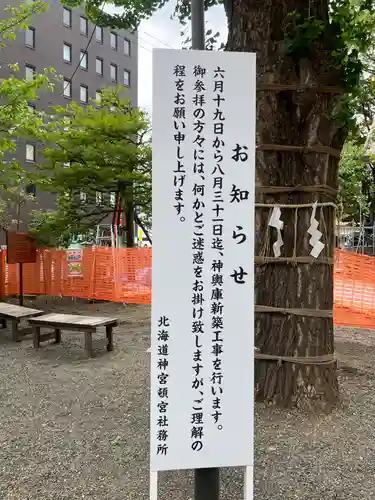 お知らせ
六月十九日から八月三十一日迄、神輿庫新築工事を行います。
御参拝の方々には、何かとご迷惑をお掛け致しますが、ご理解の
程をお願い申し上げます。
北海道神宮頓宮社務所